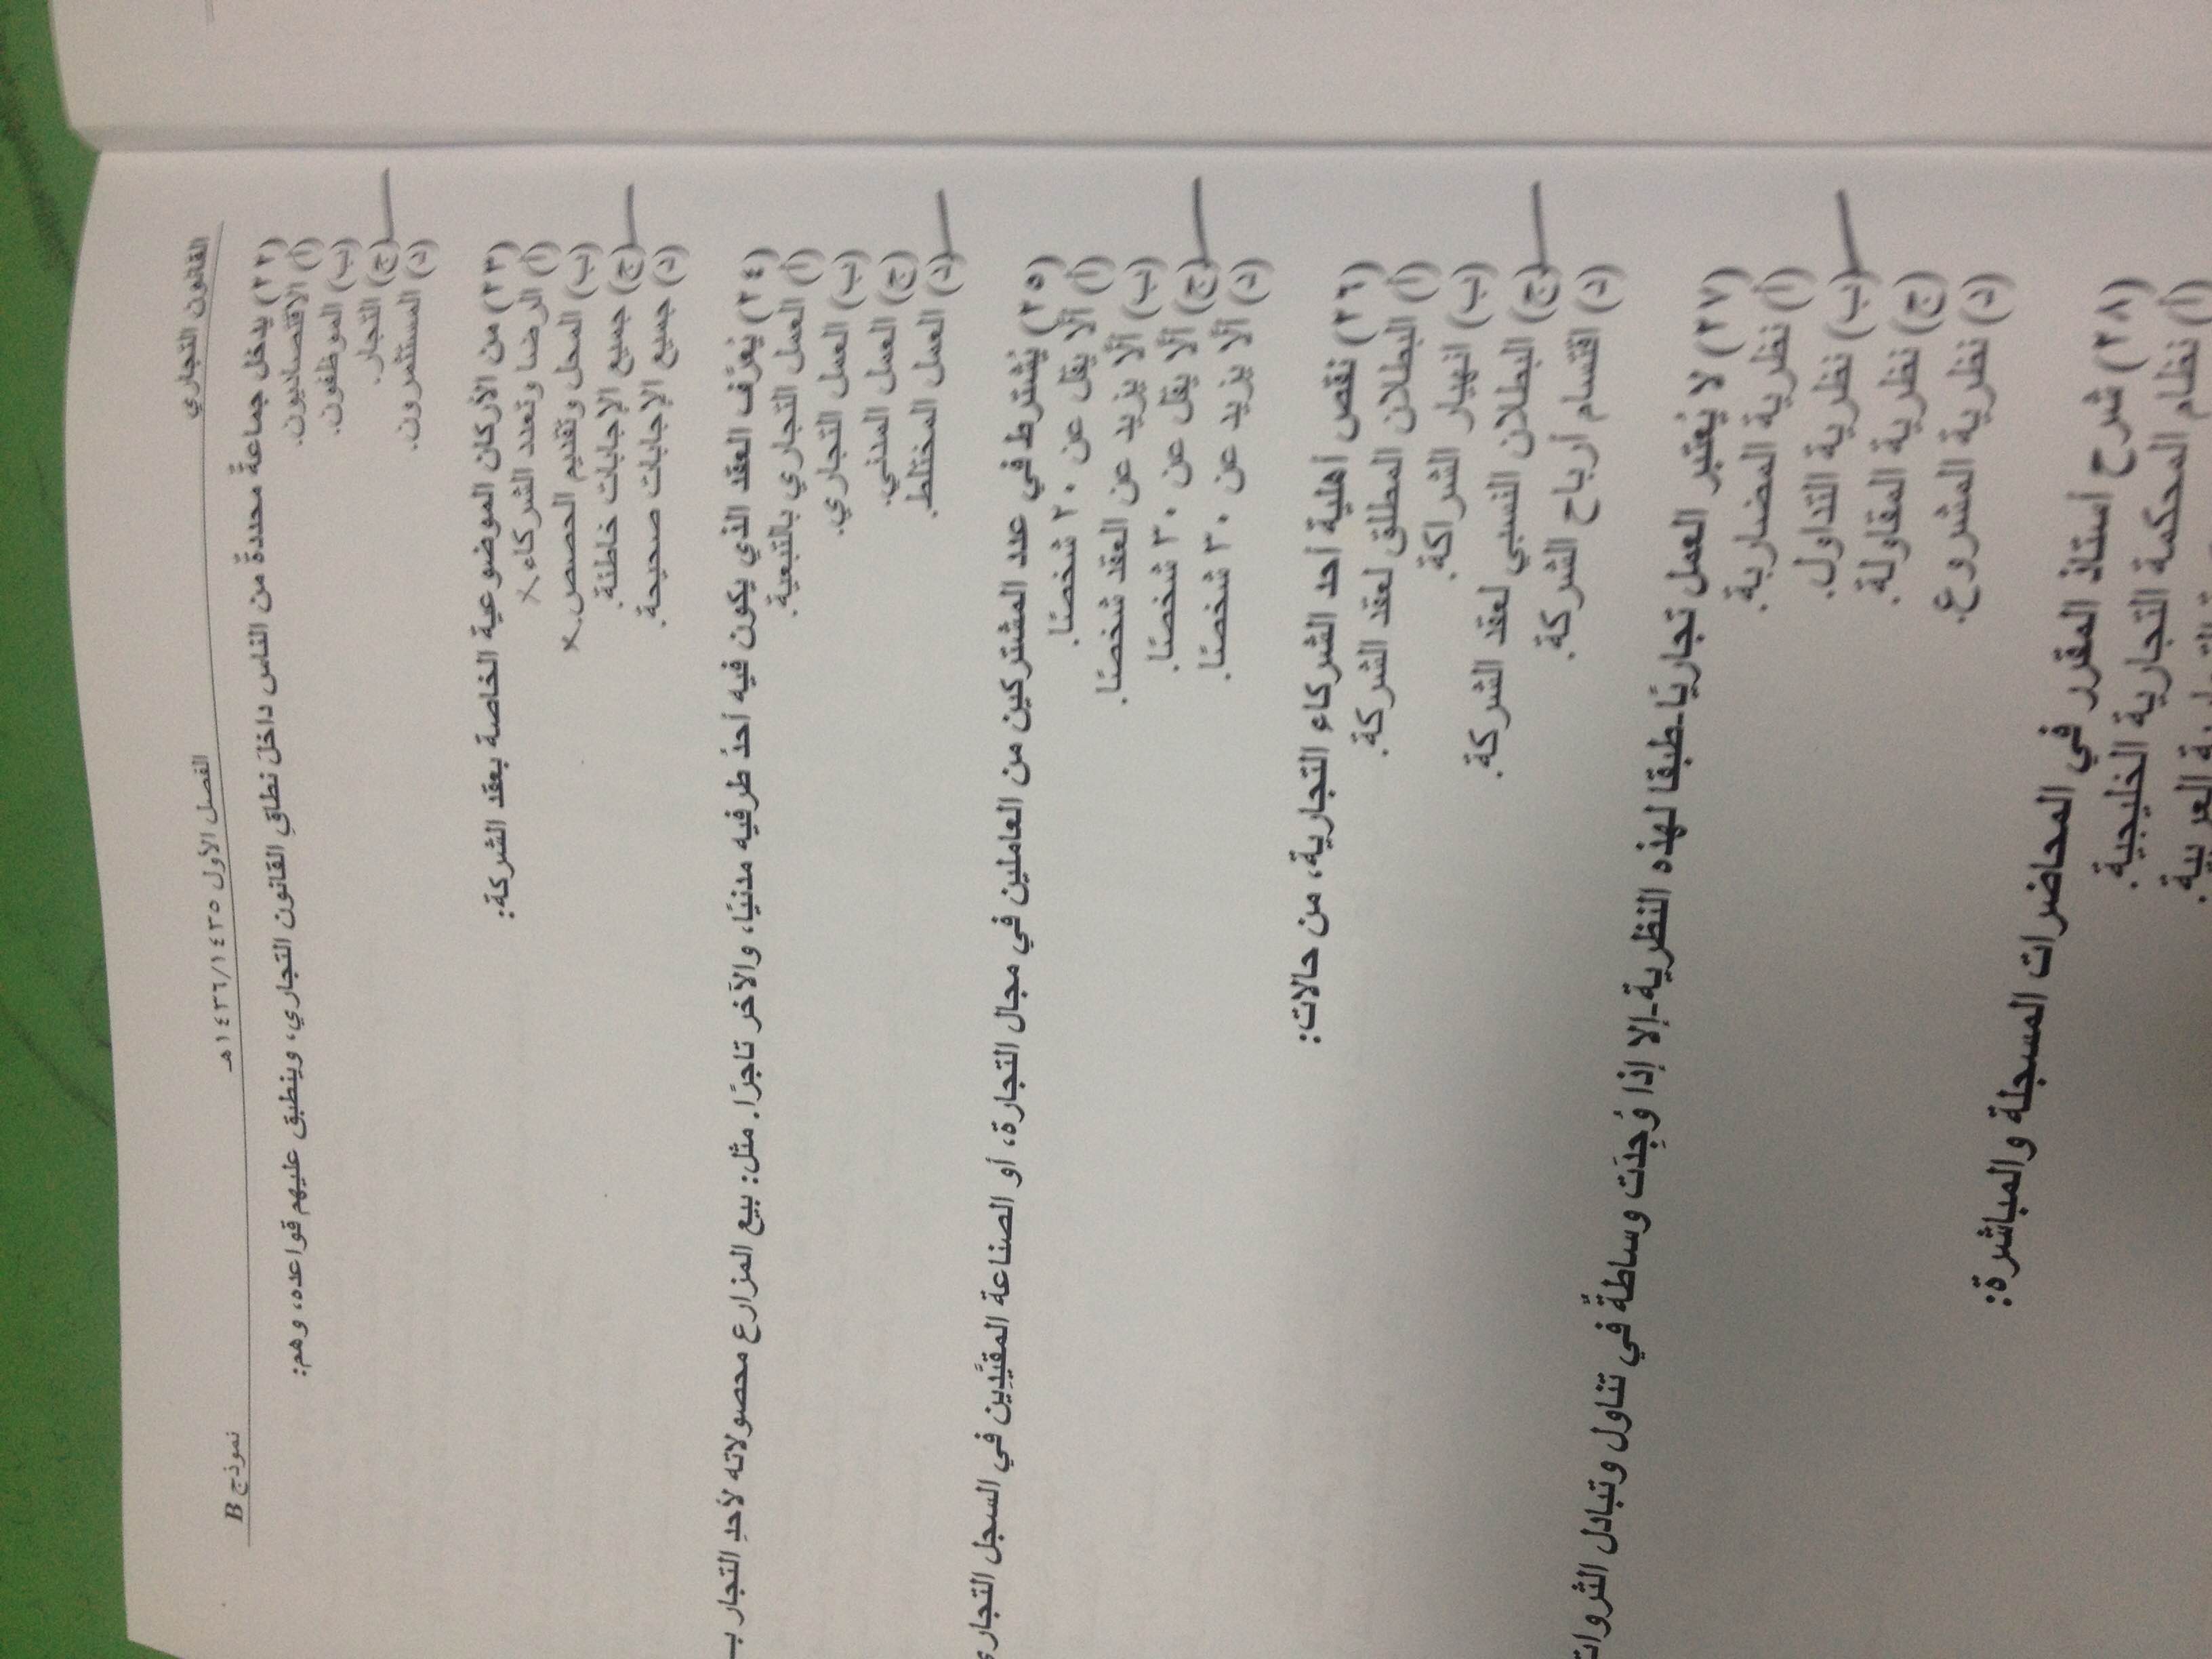 القانون التجاري الفصل الأول ١٤٣٥/١٤٣٦هـ نموذج B
(٢٢) يدخل جماعةٌ محددةٌ من الناس داخلَ نطاقِ القانون التجاري، وينطبق عليهم قواعده، وهم:
(أ) الاقتصاديون.
(ب) الموظفون.
(ج) التجار.
(د) المستثمرون.
(٢٣) من الأركان الموضوعية الخاصة بعقد الشركة:
(أ) الرضا وتعدد الشركاء X
(ب) المحل وتقديم الحصص. X
(ج) جميع الإجابات خاطئة.
(د) جميع الإجابات صحيحة.
(٢٤) يُعرَّف العقد الذي يكون فيه أحدُ طرفيه مدنيًا، والآخر تاجرًا. مثل: بيع المزارع محصولاته لأحدِ التجار بـ
(أ) العمل التجاري بالتبعية.
(ب) العمل التجاري.
(ج) العمل المدني.
(د) العمل المختلط.
(٢٥) يُشترط في عدد المشتركين من العاملين في مجال التجارة، أو الصناعة المقيَّدِين في السجل التجاري
(أ) ألّا يقل عن ٢٠ شخصًا.
(ب) ألّا يزيد عن العقد شخصًا.
(ج) ألّا يقل عن ٣٠ شخصًا.
(د) ألّا يزيد عن ٣٠ شخصًا.
(٢٦) نقص أهلية أحد الشركاء التجارية، من حالات:
(أ) البطلان المطلق لعقد الشركة.
(ب) انهيار الشراكة.
(ج) البطلان النسبي لعقد الشركة.
(د) اقتسام أرباح الشركة.
(٢٧) لا يُعتبر العمل تجاريًا-طبقا لهذه النظرية-إلا إذا وُجِدَت وساطةٌ في تناول وتبادل الثروات
(أ) نظرية المضاربة.
(ب) نظرية التداول.
(ج) نظرية المقاولة.
(د) نظرية المشروع.
(٢٨) شرح أستاذ المقرر في المحاضرات المسجلة والمباشرة:
(أ) نظام المحكمة التجارية الخليجية.
العربية.